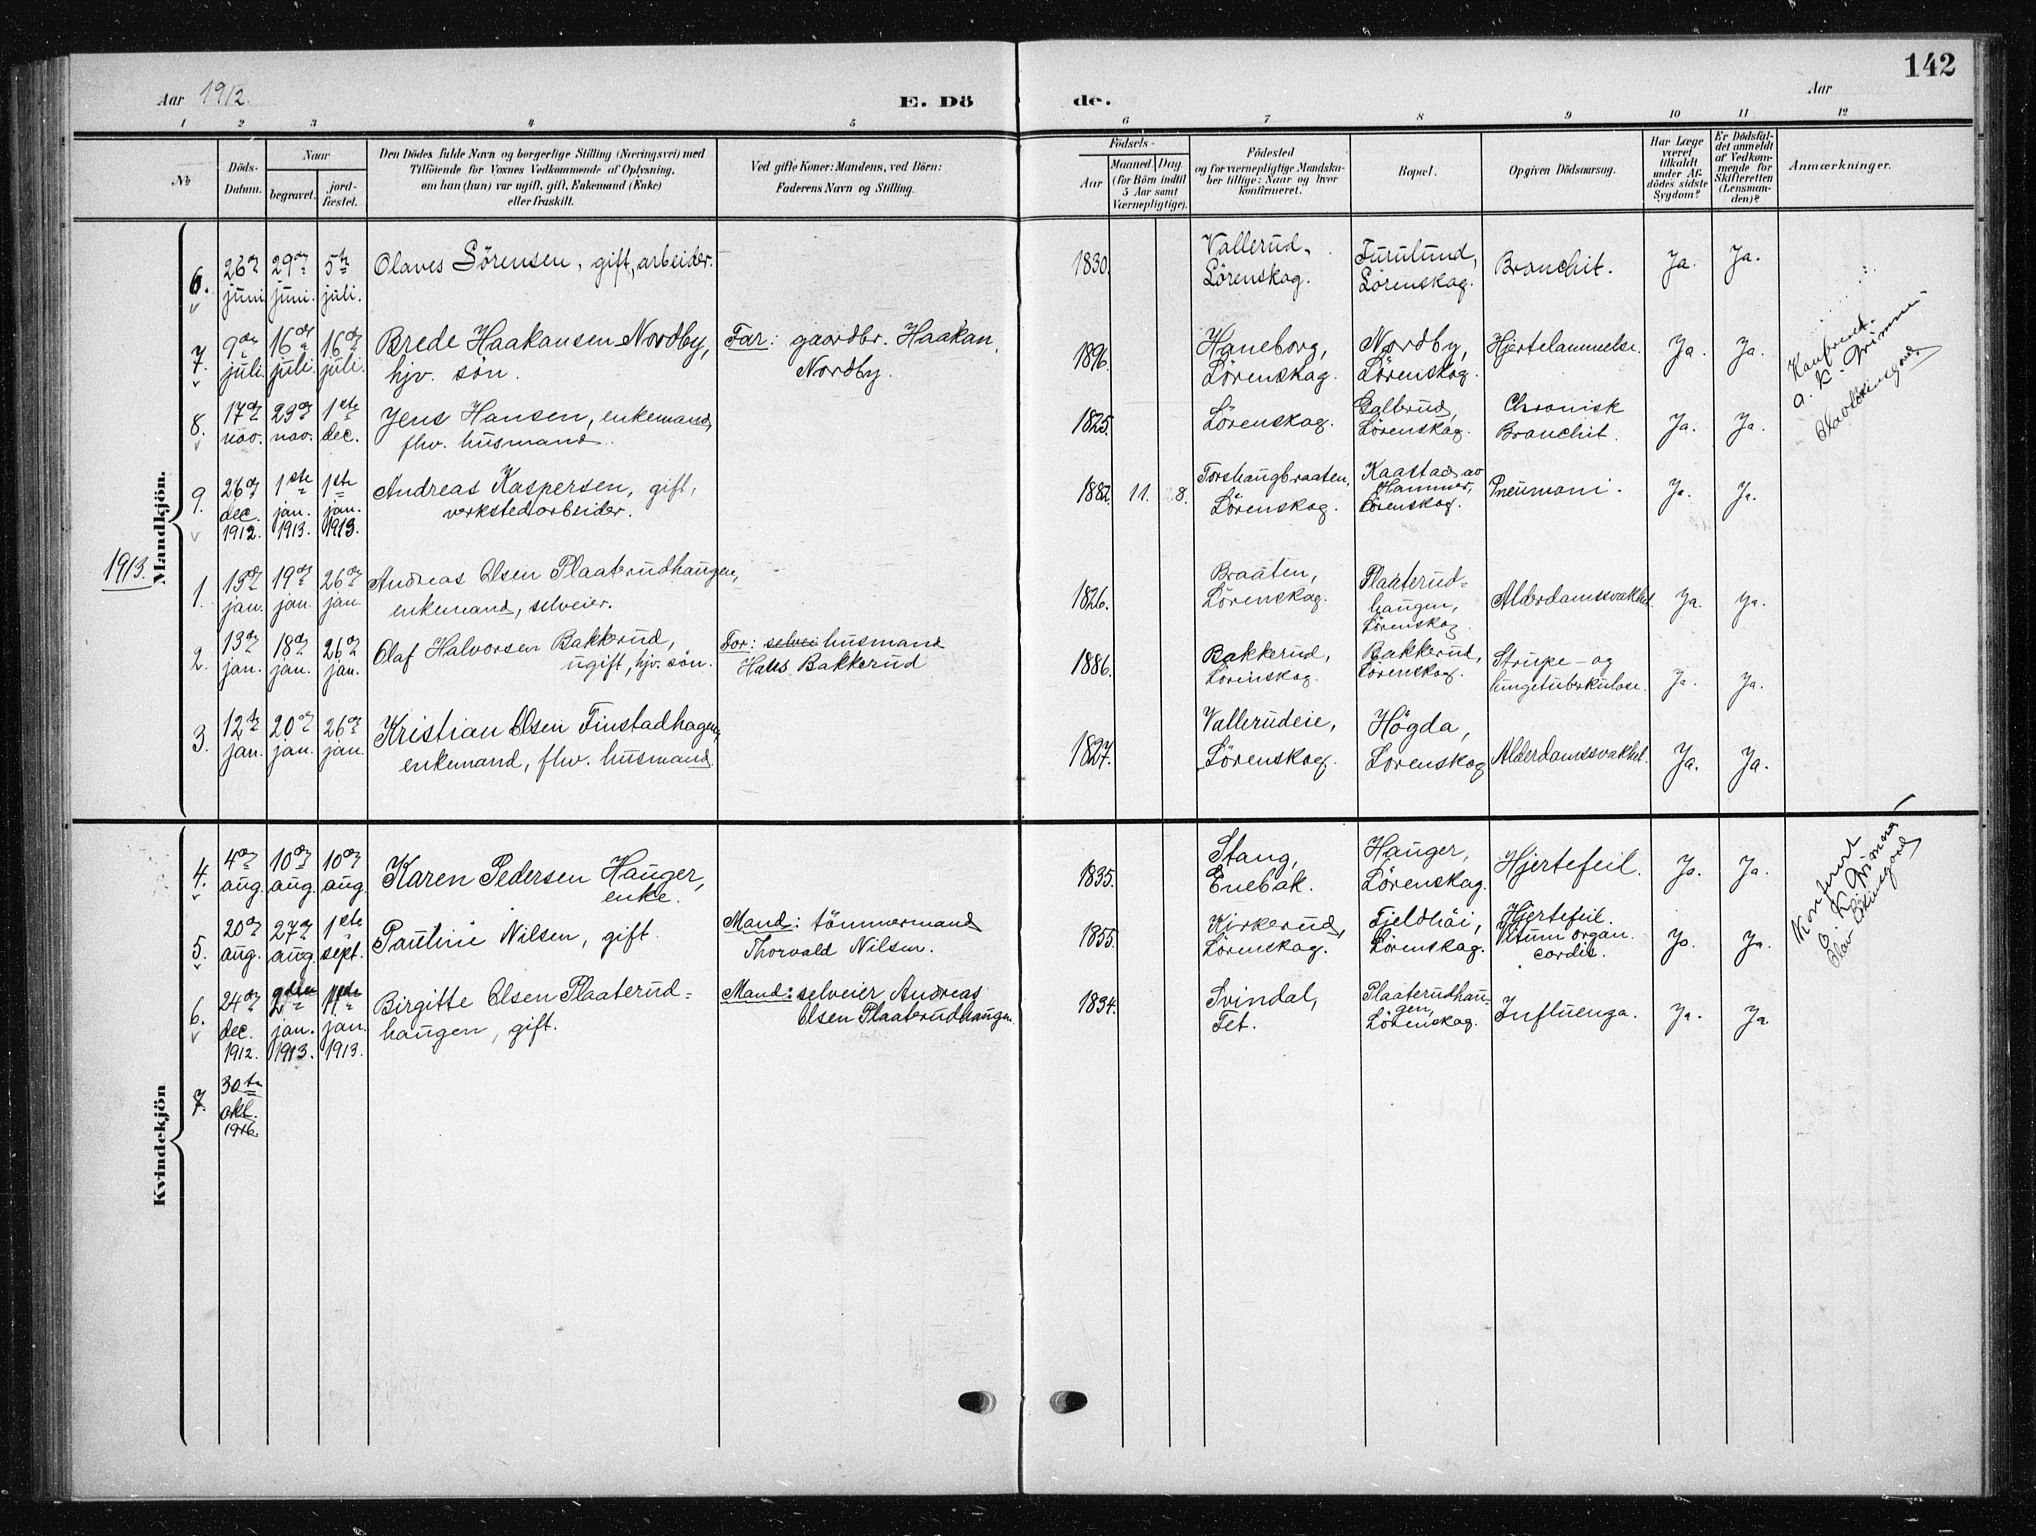 142
Aar 1912.
E. Dö
de.
Aar
1 2 3 4 5
6 7 8 9 10 11 12
No
Döds-
Datum.
Naar
begravet.
jord-
fæstet.
Den Dödes fulde Navn og borgerlige Stilling (Næringsvei) med
Tilföiende for Voxnes Vedkommende af Oplysning,
om han (hun) var ugift, gift, Enkemand (Enke)
eller fraskilt.
Ved gifte Koner: Mandens, ved Börn:
Faderens Navn og Stilling.
Födsels-
Aar
Maaned Dag
(for Börn indtil
5 Aar samt
Værnepligtige).
Födested
og for værnepligtige Mandska-
ber tillige: Naar og hvor
konfirmeret.
Bopæl.
Opgiven Dödsaarsag.
Har Læge
været
tilkaldt
under Af-
dödes sidste
Sygdom?
Er Dödsfal-
det anmeldt
af Vedkom-
mende for
Skifteretten
(Lensman-
den)?
Anmærkninger.
Mandkjön.
6. 26de juni 29de juni. 5te juli. Olaves Sörensen, gift, arbeider. 1830. Vallerud, Lörenskog. Furulund, Lörenskog. Bronchit. Ja. Ja.
7. 9de juli. 16de juli. 16de juli. Brede Haakonsen Nordby,
hjv. sön.
Far: gaardbr. Haakon
Nordby.
1896. Haneborg, Lörenskog. Nordby, Lörenskog. Hjertelammelse. Ja. Ja.
Konferert.
8. 17de nov. 29de nov. 1ste dec. Jens Hansen, enkemand,
fhv. husmand.
1825. Lörenskog. Lörenskog. Chronisk
Bronchit. Ja. Ja.
9. 26de dec. 1912. 1ste jan. 1913. 1ste jan. 1913. Andreas Kaspersen, gift,
verkstedarbeider.
1882. 11. 28. Torshaugbraaten, Lörenskog. Kaastad av Hammer, Lörenskog. Pneumoni. Ja. Ja.
1913.
1. 13de jan. 19de jan. 26de jan. Andreas Olsen Plaaterudhaugen,
enkemand, selveier.
1826. Braaten, Lörenskog. Plaaterud-
haugen,
Lörenskog Alderdomssvakhet. Ja. Ja.
2. 13de jan. 18de jan. 26de jan. Olaf Halvorsen Bakkerud,
ugift, hjv. sön.
Far: selvei husmand
Hans Bakkerud
1886. Bakkerud, Lörenskog. Bakkerud, Lörenskog. Strupe- og
lungetuberkulose. Ja. Ja.
3. 12te jan. 20de jan. 26de jan. Kristian Olsen Finstadhagen,
enkemand, fhv. husmand.
1827. Vallerudeie, Lörenskog. Högda, Lörenskog Alderdomssvakhet. Ja. Ja.
Kvindekjön
4. 4de aug. 10de aug. 10de aug. Karen Pedersen Hauger,
enke.
1835. Stang, Enebak. Hauger, Lörenskog. Hjertefeil. Ja. Ja.
Konferert
5. 20de aug. 27de aug. 1ste sept. Pauline Nilsen, gift.
Mand: tömmermand
Thorvald Nilsen.
1855. Kirkerud, Lörenskog. Fjeldhöi, Lörenskog. Hjertefeil.
Vitium organ.
cordis. Ja. Ja.
6. 24de dec. 1912. 2den jan. 1913. jan. 1913. Birgitte Olsen Plaaterud-
haugen, gift.
Mand: selveier Andreas
Olsen Plaaterudhaugen.
1834. Svindal, Fet. Plaaterudhau-
gen,
Lörenskog. Influenza. Ja. Ja.
7. 30te okt. 1916.